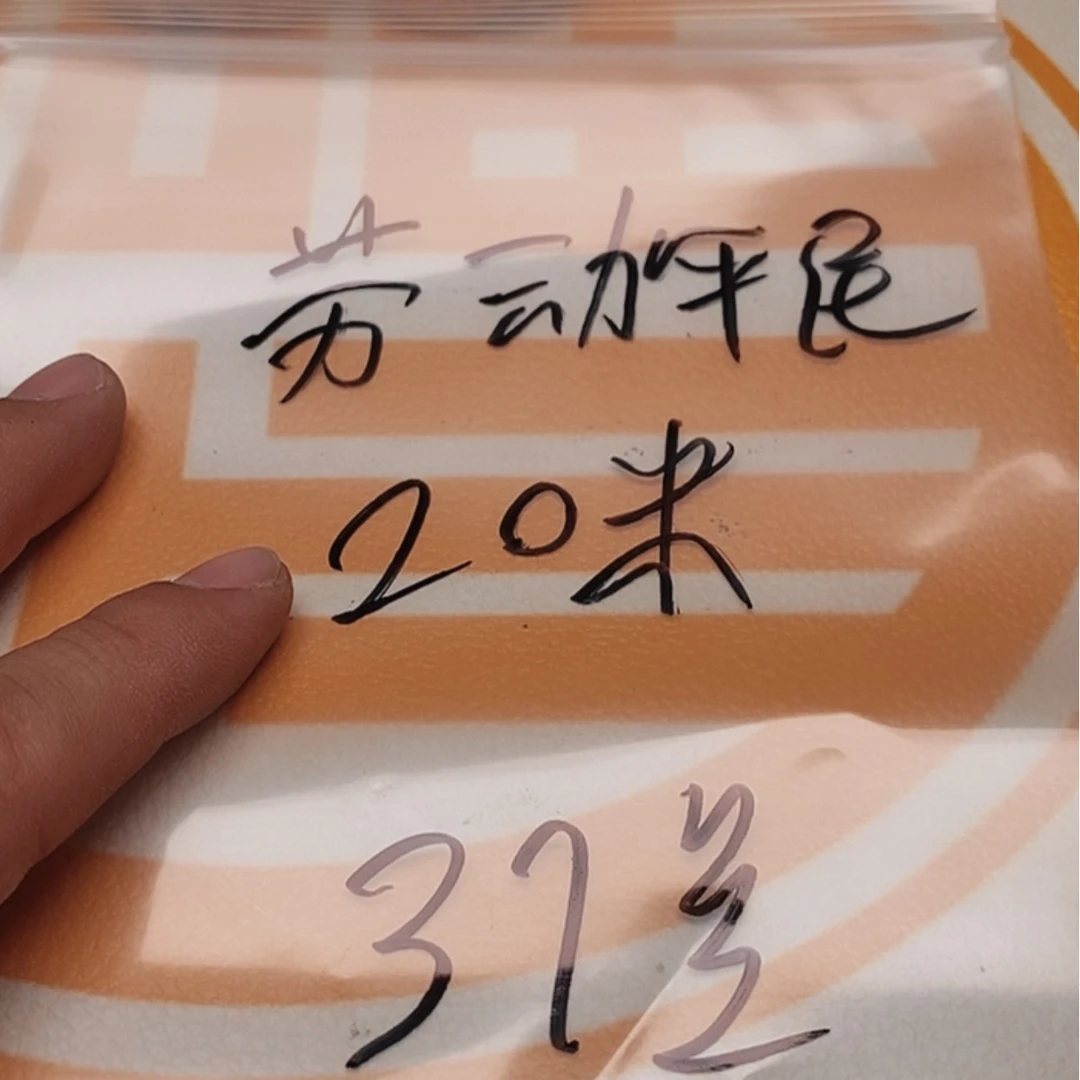 劳动平
20米
37号